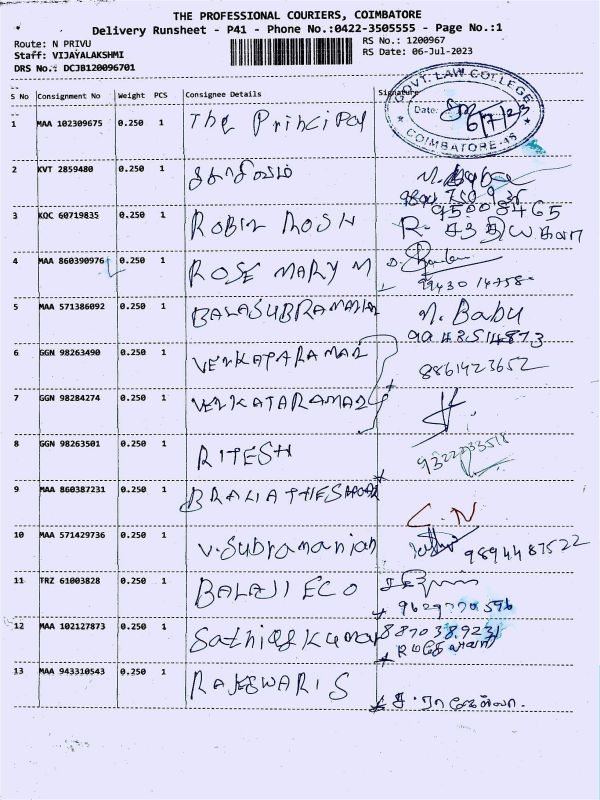 THE PROFESSIONAL COURIERS, COIMBATORE
Delivery Runsheet - P41 - Phone No.:0422-3505555 - Page No.:1
Route: N PRIVU RS No.: 1200967
Staff: VIJAYALAKSHMI RS Date: 06-Jul-2023
DRS No.: DCJB120096701
S No Consignment No Weight PCS Consignee Details Signature
GOVT. LAW COLLEGE
Date: 6/7/23
COIMBATORE-46
1 MAA 102309675 0.250 1 The Principal
2 KVT 2859480 0.250 1
3 KOC 60719835 0.250 1 ROBIN ROSH
4 MAA 860390976 0.250 1 ROSE MARY M
5 MAA 571386092 0.250 1 BALASUBRAMANIAN M. Babu
6 GGN 98263490 0.250 1 VENKATARAMAN 8861423652
7 GGN 98284274 0.250 1 VENKATARAMAN
8 GGN 98263501 0.250 1 RITESH
9 MAA 860387231 0.250 1 C.N
10 MAA 571429736 0.250 1 V. Subramanian 9894487522
11 TRZ 61003828 0.250 1 BALAJI ECO
9629770596
12 MAA 102127873 0.250 1 Sathish Kumar 8870389231
13 MAA 943310543 0.250 1 RAJESWARI S